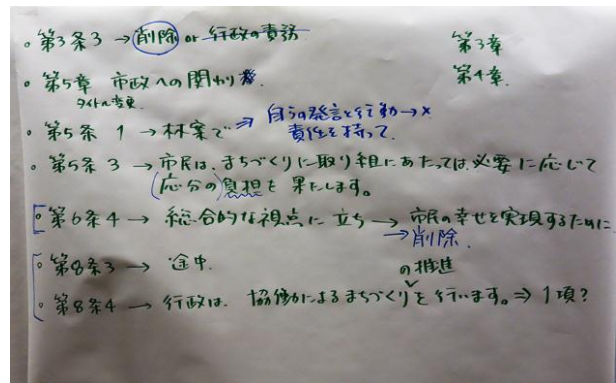 。第3条3 → 削除 or 行政の責務
第3章
。第5章 市政への関わり方
第4章
タイトル変更.
。第5条 1 → 林案で ⇒ 自らの発言と行動→×
責任を持って.
。第5条 3 → 市民は、まちづくりに取り組にあたっては、必要に応じて
(応分の)負担を果たします。
。第6条4 → 総合的な視点に立ち → 市民の幸せを実現するために
→削除.
。第8条3 → 途中.
の推進
。第8条4 → 行政は、協働によるまちづくりを行います。⇒ 1項?